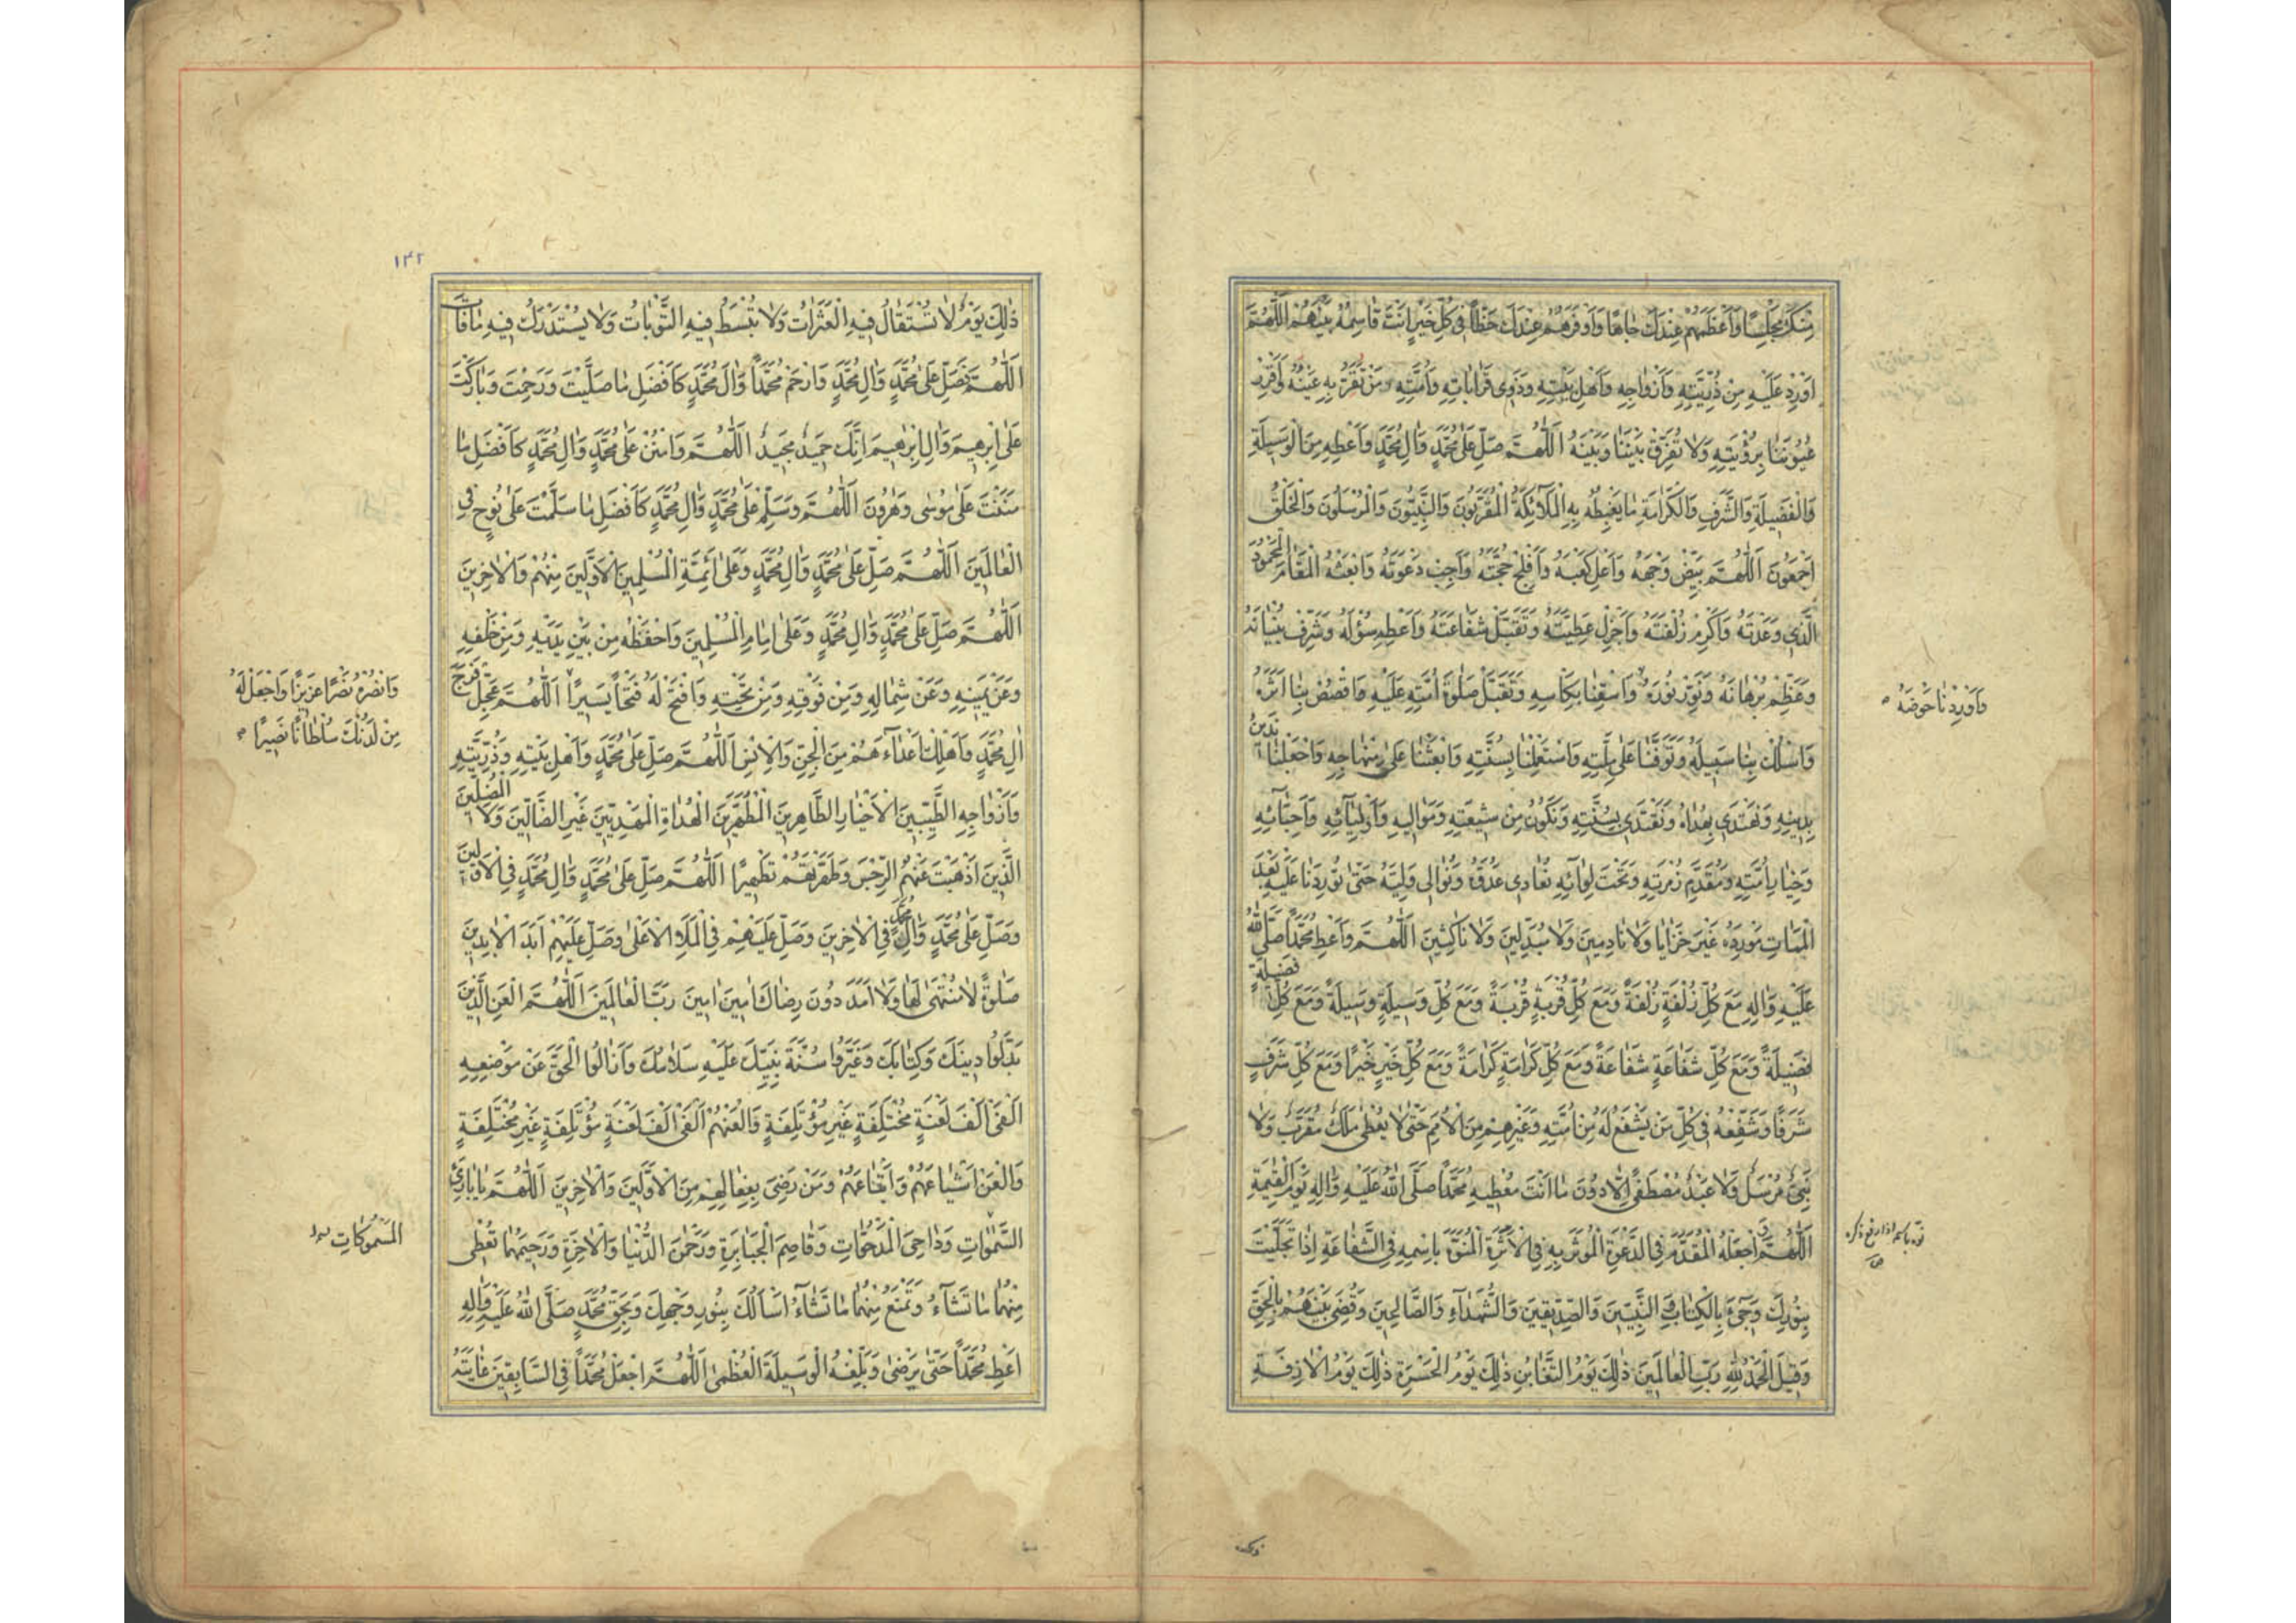 مِنْكَ مَجْلِسًا وَاَعْظَمَهُمْ عِنْدَكَ جَاهًا وَاَوْفَرَهُمْ عِنْدَكَ حَظًّا فِى كُلِّ خَيْرٍ اَنْتَ قَاسِمُهُ بَيْنَهُمْ اَللّٰهُمَّ
اَوْرِدْ عَلَيْهِ مِنْ ذُرِّيَّتِهِ وَاَزْوَاجِهِ وَاَهْلِ بَيْتِهِ وَذَوِى قَرَابَاتِهِ وَاُمَّتِهِ مَنْ تَقَرُّ بِهِ عَيْنُهُ وَاَقْرِرْ
عُيُونَنَا بِرُؤْيَتِهِ وَلَا تُفَرِّقْ بَيْنَنَا وَبَيْنَهُ اَللّٰهُمَّ صَلِّ عَلٰى مُحَمَّدٍ وَاٰلِ مُحَمَّدٍ وَاَعْطِهِ مِنَ الْوَسِيلَةِ
وَالْفَضِيلَةِ وَالشَّرَفِ وَالْكَرَامَةِ مَا يَغْبِطُهُ بِهِ الْمَلَآئِكَةُ الْمُقَرَّبُونَ وَالنَّبِيُّونَ وَالْمُرْسَلُونَ وَالْخَلْقُ
اَجْمَعُونَ اَللّٰهُمَّ بَيِّضْ وَجْهَهُ وَاَعْلِ كَعْبَهُ وَاَفْلِجْ حُجَّتَهُ وَاَجِبْ دَعْوَتَهُ وَابْعَثْهُ الْمَقَامَ الْمَحْمُودَ
الَّذِى وَعَدْتَهُ وَاَكْرِمْ زُلْفَتَهُ وَاَجْزِلْ عَطِيَّتَهُ وَتَقَبَّلْ شَفَاعَتَهُ وَاَعْطِهِ سُؤْلَهُ وَشَرِّفْ بُنْيَانَهُ
وَعَظِّمْ بُرْهَانَهُ وَنَوِّرْ نُورَهُ وَاسْقِنَا بِكَاْسِهِ وَتَقَبَّلْ صَلٰوةَ اُمَّتِهِ عَلَيْهِ وَاقْصُصْ بِنَا اَثَرَهُ
وَاَوْرِدْنَا حَوْضَهُ
وَاسْلُكْ بِنَا سَبِيلَهُ وَتَوَفَّنَا عَلٰى مِلَّتِهِ وَاسْتَعْمِلْنَا بِسُنَّتِهِ وَابْعَثْنَا عَلٰى مِنْهَاجِهِ وَاجْعَلْنَا نَدِينُ
بِدِينِهِ وَنَهْتَدِى بِهُدَاهُ وَنَقْتَدِى بِسُنَّتِهِ وَنَكُونُ مِنْ شِيعَتِهِ وَمَوَالِيهِ وَاَوْلِيَآئِهِ وَاَحِبَّآئِهِ
وَخِيَارِ اُمَّتِهِ وَمُقَدَّمِ زُمْرَتِهِ وَتَحْتَ لِوَآئِهِ نُعَادِى عَدُوَّهُ وَنُوَالِى وَلِيَّهُ حَتّٰى تُورِدَنَا عَلَيْهِ بَعْدَ
الْمَمَاتِ مَوْرِدَهُ غَيْرَ خَزَايَا وَلَا نَادِمِينَ وَلَا مُبَدِّلِينَ وَلَا نَاكِثِينَ اَللّٰهُمَّ وَاَعْطِ مُحَمَّدًا صَلَّى اللّٰهُ
عَلَيْهِ وَاٰلِهِ مَعَ كُلِّ زُلْفَةٍ زُلْفَةً وَمَعَ كُلِّ قُرْبَةٍ قُرْبَةً وَمَعَ كُلِّ وَسِيلَةٍ وَسِيلَةً وَمَعَ كُلِّ فَضِيلَةٍ
فَضِيلَةً وَمَعَ كُلِّ شَفَاعَةٍ شَفَاعَةً وَمَعَ كُلِّ كَرَامَةٍ كَرَامَةً وَمَعَ كُلِّ خَيْرٍ خَيْرًا وَمَعَ كُلِّ شَرَفٍ
شَرَفًا وَشَفِّعْهُ فِى كُلِّ مَنْ يَشْفَعُ لَهُ مِنْ اُمَّتِهِ وَغَيْرِهِمْ مِنَ الْاُمَمِ حَتّٰى لَا يُعْطٰى مَلَكٌ مُقَرَّبٌ وَلَا
نَبِىٌّ مُرْسَلٌ وَلَا عَبْدٌ مُصْطَفًى اِلَّا دُونَ مَا اَنْتَ مُعْطِيهِ مُحَمَّدًا صَلَّى اللّٰهُ عَلَيْهِ وَاٰلِهِ يَوْمَ الْقِيٰمَةِ
اَللّٰهُمَّ وَاجْعَلْهُ الْمُقَدَّمَ فِى الدَّعْوَةِ الْمُؤْثَرَ بِهِ فِى الْاَثَرَةِ الْمُنَوَّهَ بِاسْمِهِ فِى الشَّفَاعَةِ اِذَا تَجَلَّيْتَ
نوّه باسمه اذا رفع ذكره
بِنُورِكَ وَجِىءَ بِالْكِتَابِ وَالنَّبِيِّينَ وَالصِّدِّيقِينَ وَالشُّهَدَآءِ وَالصَّالِحِينَ وَقُضِىَ بَيْنَهُمْ بِالْحَقِّ
وَقِيلَ الْحَمْدُ لِلّٰهِ رَبِّ الْعَالَمِينَ ذٰلِكَ يَوْمُ التَّغَابُنِ ذٰلِكَ يَوْمُ الْحَسْرَةِ ذٰلِكَ يَوْمُ الْاٰزِفَةِ
١٤٢
ذٰلِكَ يَوْمٌ لَا تُسْتَقَالُ فِيهِ الْعَثَرَاتُ وَلَا تُبْسَطُ فِيهِ التَّوْبَاتُ وَلَا يُسْتَدْرَكُ فِيهِ مَا فَاتَ
اَللّٰهُمَّ فَصَلِّ عَلٰى مُحَمَّدٍ وَاٰلِ مُحَمَّدٍ وَارْحَمْ مُحَمَّدًا وَاٰلَ مُحَمَّدٍ كَاَفْضَلِ مَا صَلَّيْتَ وَرَحِمْتَ وَبَارَكْتَ
عَلٰى اِبْرٰهِيمَ وَاٰلِ اِبْرٰهِيمَ اِنَّكَ حَمِيدٌ مَجِيدٌ اَللّٰهُمَّ وَامْنُنْ عَلٰى مُحَمَّدٍ وَاٰلِ مُحَمَّدٍ كَاَفْضَلِ مَا
مَنَنْتَ عَلٰى مُوسٰى وَهٰرُونَ اَللّٰهُمَّ وَسَلِّمْ عَلٰى مُحَمَّدٍ وَاٰلِ مُحَمَّدٍ كَاَفْضَلِ مَا سَلَّمْتَ عَلٰى نُوحٍ فِى
الْعَالَمِينَ اَللّٰهُمَّ صَلِّ عَلٰى مُحَمَّدٍ وَاٰلِ مُحَمَّدٍ وَعَلٰى اَئِمَّةِ الْمُسْلِمِينَ الْاَوَّلِينَ مِنْهُمْ وَالْاٰخِرِينَ
اَللّٰهُمَّ صَلِّ عَلٰى مُحَمَّدٍ وَاٰلِ مُحَمَّدٍ وَعَلٰى اِمَامِ الْمُسْلِمِينَ وَاحْفَظْهُ مِنْ بَيْنِ يَدَيْهِ وَمِنْ خَلْفِهِ
وَعَنْ يَمِينِهِ وَعَنْ شِمَالِهِ وَمِنْ فَوْقِهِ وَمِنْ تَحْتِهِ وَافْتَحْ لَهُ فَتْحًا يَسِيرًا اَللّٰهُمَّ عَجِّلْ فَرَجَ
وَانْصُرْهُ نَصْرًا عَزِيزًا وَاجْعَلْ لَهُ
مِنْ لَدُنْكَ سُلْطَانًا نَصِيرًا
اٰلِ مُحَمَّدٍ وَاَهْلِكْ اَعْدَآءَهُمْ مِنَ الْجِنِّ وَالْاِنْسِ اَللّٰهُمَّ صَلِّ عَلٰى مُحَمَّدٍ وَاَهْلِ بَيْتِهِ وَذُرِّيَّتِهِ
وَاَزْوَاجِهِ الطَّيِّبِينَ الْاَخْيَارِ الطَّاهِرِينَ الْمُطَهَّرِينَ الْهُدَاةِ الْمَهْدِيِّينَ غَيْرِ الضَّالِّينَ وَلَا الْمُضِلِّينَ
الَّذِينَ اَذْهَبْتَ عَنْهُمُ الرِّجْسَ وَطَهَّرْتَهُمْ تَطْهِيرًا اَللّٰهُمَّ صَلِّ عَلٰى مُحَمَّدٍ وَاٰلِ مُحَمَّدٍ فِى الْاَوَّلِينَ
وَصَلِّ عَلٰى مُحَمَّدٍ وَاٰلِ مُحَمَّدٍ فِى الْاٰخِرِينَ وَصَلِّ عَلَيْهِمْ فِى الْمَلَاِ الْاَعْلٰى وَصَلِّ عَلَيْهِمْ اَبَدَ الْاٰبِدِينَ
صَلٰوةً لَا مُنْتَهٰى لَهَا وَلَا اَمَدَ دُونَ رِضَاكَ اٰمِينَ اٰمِينَ رَبَّ الْعَالَمِينَ اَللّٰهُمَّ الْعَنِ الَّذِينَ
بَدَّلُوا دِينَكَ وَكِتَابَكَ وَغَيَّرُوا سُنَّةَ نَبِيِّكَ عَلَيْهِ سَلَامُكَ وَاَزَالُوا الْحَقَّ عَنْ مَوْضِعِهِ
اَلْفَىْ اَلْفِ لَعْنَةٍ مُخْتَلِفَةٍ غَيْرِ مُؤْتَلِفَةٍ وَالْعَنْهُمْ اَلْفَىْ اَلْفِ لَعْنَةٍ مُؤْتَلِفَةٍ غَيْرِ مُخْتَلِفَةٍ
وَالْعَنْ اَشْيَاعَهُمْ وَاَتْبَاعَهُمْ وَمَنْ رَضِىَ بِفِعَالِهِمْ مِنَ الْاَوَّلِينَ وَالْاٰخِرِينَ اَللّٰهُمَّ يَا بَارِئَ
السَّمٰوَاتِ وَدَاحِىَ الْمَدْحُوَّاتِ وَقَاصِمَ الْجَبَابِرَةِ وَرَحْمٰنَ الدُّنْيَا وَالْاٰخِرَةِ وَرَحِيمَهُمَا تُعْطِى
الْمَسْمُوكَاتِ
مِنْهُمَا مَا تَشَآءُ وَتَمْنَعُ مِنْهُمَا مَا تَشَآءُ اَسْاَلُكَ بِنُورِ وَجْهِكَ وَبِحَقِّ مُحَمَّدٍ صَلَّى اللّٰهُ عَلَيْهِ وَاٰلِهِ
اَعْطِ مُحَمَّدًا حَتّٰى يَرْضٰى وَبَلِّغْهُ الْوَسِيلَةَ الْعُظْمٰى اَللّٰهُمَّ اجْعَلْ مُحَمَّدًا فِى السَّابِقِينَ غَايَتَهُ